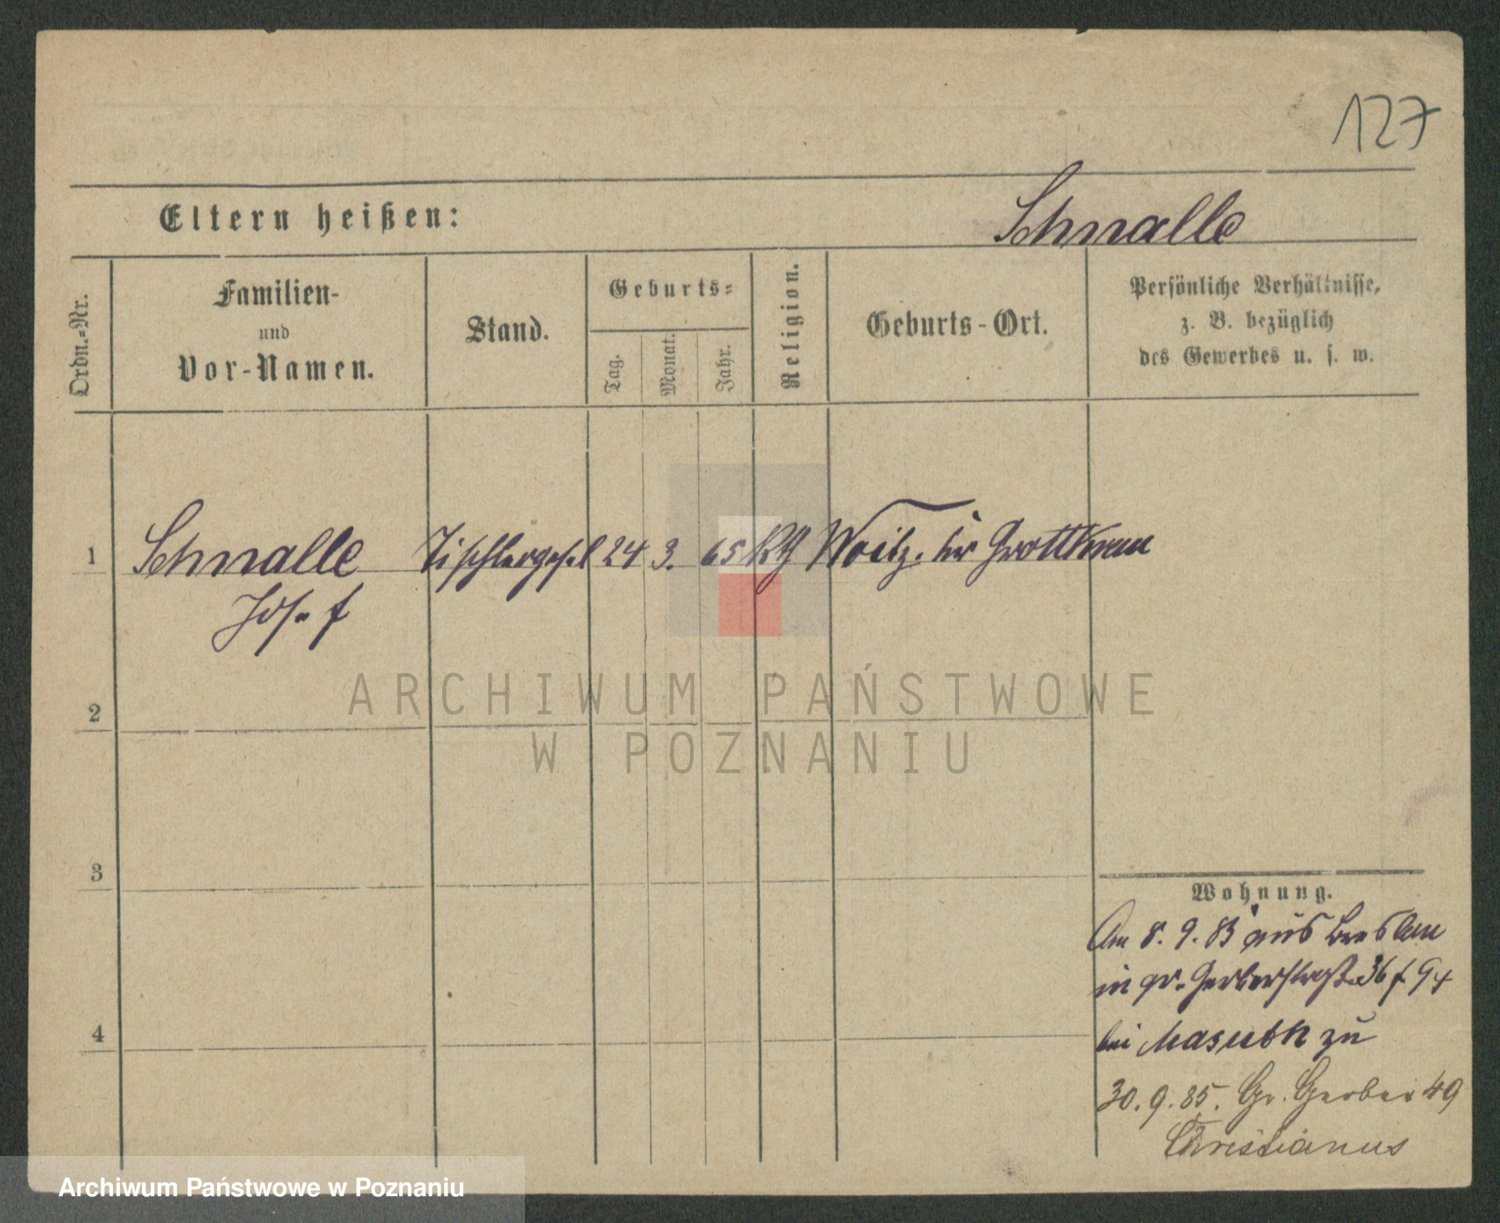 127
Eltern heißen:
Schnalle
Ordn.-Nr.
Familien-
und
Vor-Namen.
Stand.
Geburts-
Tag.
Monat.
Jahr.
Religion.
Geburts-Ort.
Persönliche Verhältnisse,
z. B. bezüglich
des Gewerbes u. s. w.
1 Schnalle Tischlergesel 24 3. 65 Woitz. Grottkau
Josef
2
3
4
ARCHIWUM PAŃSTWOWE
W POZNANIU
Wohnung.
Am 8. 9. 83 aus Breslau
in gr. Gerberstraße 36
bei zu
30. 9. 85. Gr. Gerber 49
Christianus
Archiwum Państwowe w Poznaniu